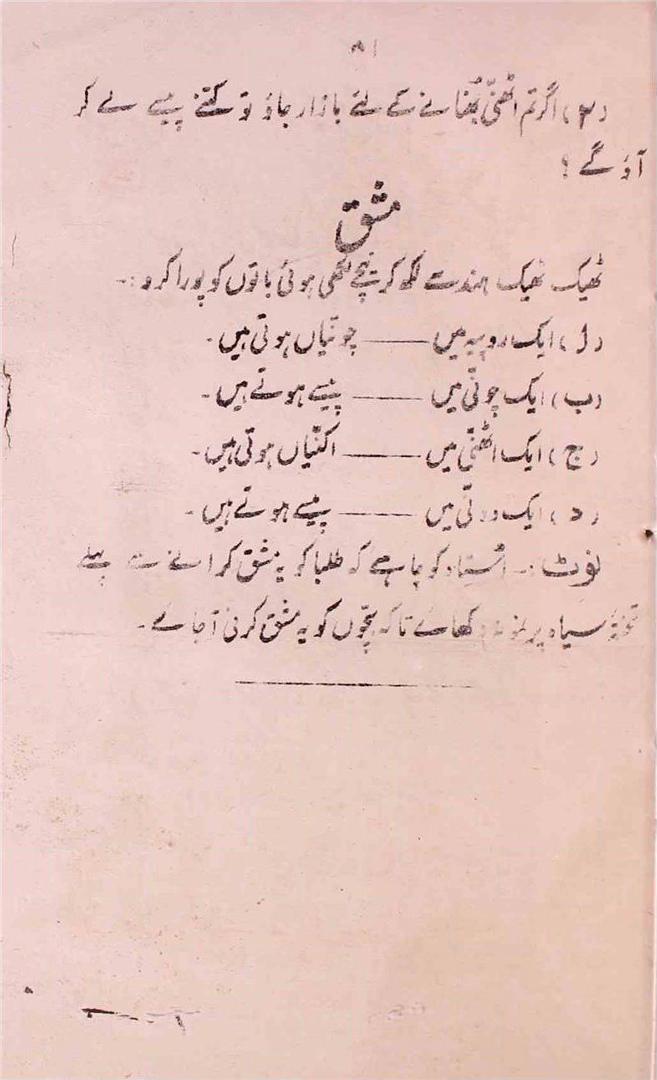 ۵۱
(۴) اگر تم اٹھنّی بھُنانے کے لئے بازار جاؤ تو کتنے پیسے لے کر
آؤ گے ؟
مشق
ٹھیک ٹھیک ہندسے لکھ کر نیچے لکھی ہوئی باتوں کو پورا کرو:۔
(ا) ایک روپیہ میں ـــــــــ چونّیاں ہوتی ہیں۔
(ب) ایک چونّی میں ـــــــــ پیسے ہوتے ہیں۔
(ج) ایک اٹھنّی میں ـــــــــ اکنّیاں ہوتی ہیں۔
(د) ایک دونّی میں ـــــــــ پیسے ہوتے ہیں۔
نوٹ:۔ اُستاد کو چاہے کہ طلبا کو یہ مشق کرانے سے پہلے
تختۂ سیاہ پر نمونہ دکھائے تاکہ بچّوں کو یہ مشق کرنی آجائے۔